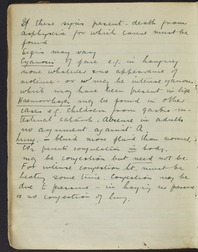 If these signs present. death from
asphyxia for which cause must be
found
Signs may vary
Cyanosis of face e.g. in hanging
more whatever no appearance of
and may be intense cyanosis
which may have been present in life
Haemorrhages may be found in other
cases e.g. children from gastro-in-
testinal catarrh. Absence in adults
no argument against A.
Lung. is blood more fluid than normal,
CO2 points congestion in body,
may be congestion but need not be.
For intense congestion ht. must be
beating some time. Congestion may be
due to pressure - in hanging no pressure
so no congestion of lung.